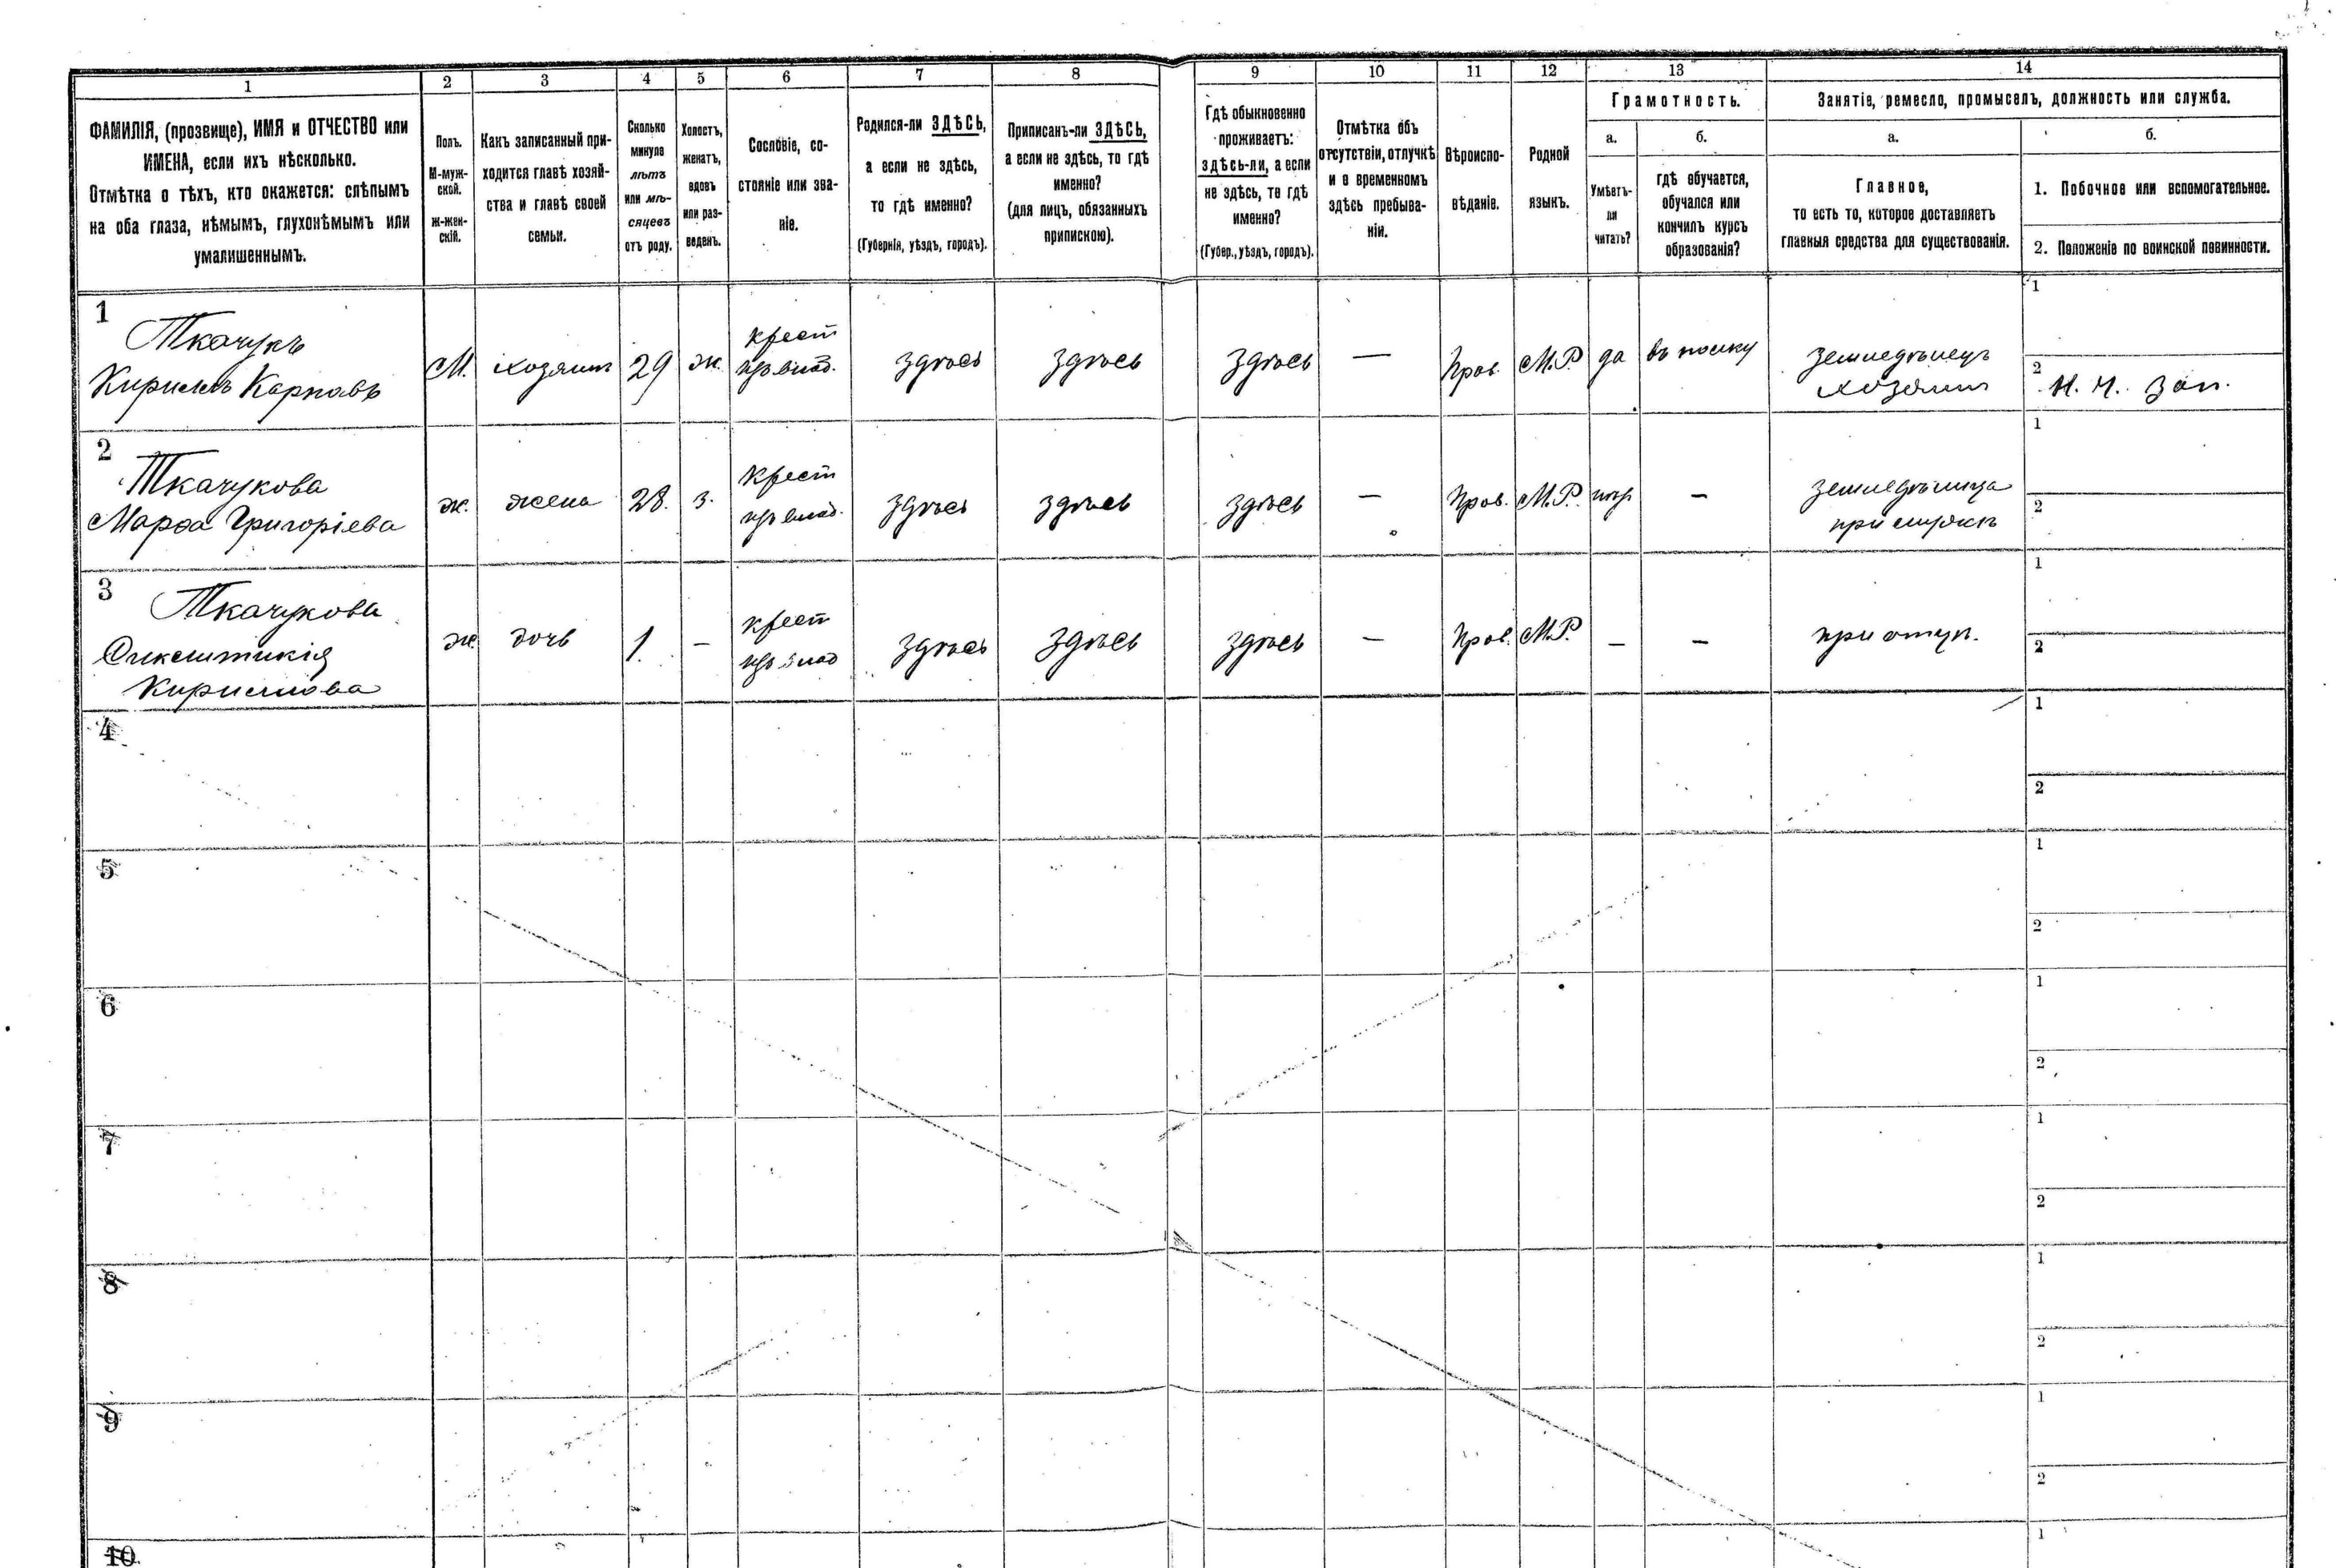 1 2 3 4 5 6 7 8 9 10 11 12 13 14
ФАМИЛІЯ, (прозвище), ИМЯ и ОТЧЕСТВО или
ИМЕНА, если ихъ нѣсколько.
Отмѣтка о тѣхъ, кто окажется: слѣпымъ
на оба глаза, нѣмымъ, глухонѣмымъ или
умалишеннымъ.
Полъ.
М-муж-
ской.
Ж-жен-
скій.
Какъ записанный при-
ходится главѣ хозяй-
ства и главѣ своей
семьи.
Сколько
минуло
лѣтъ
или мѣ-
сяцевъ
отъ роду.
Холостъ,
женатъ,
вдовъ
или раз-
веденъ.
Сословіе, со-
стояніе или зва-
ніе.
Родился-ли ЗДѢСЬ,
а если не здѣсь,
то гдѣ именно?
(Губернія, уѣздъ, городъ).
Приписанъ-ли ЗДѢСЬ,
а если не здѣсь, то гдѣ
именно?
(для лицъ, обязанныхъ
припискою).
Гдѣ обыкновенно
проживаетъ:
здѣсь-ли, а если
не здѣсь, то гдѣ
именно?
(Губер., уѣздъ, городъ).
Отмѣтка объ
отсутствіи, отлучкѣ
и о временномъ
здѣсь пребыва-
ніи.
Вѣроиспо-
вѣданіе.
Родной
языкъ.
Грамотность.
а.
Умѣетъ-
ли
читать?
б.
гдѣ обучается,
обучался или
кончилъ курсъ
образованія?
Занятіе, ремесло, промыселъ, должность или служба.
а.
Главное,
то есть то, которое доставляетъ
главныя средства для существованія.
б.
1. Побочное или вспомогательное.
2. Положеніе по воинской повинности.
1
Ткачукъ
Кириллъ Карповъ
М.
хозяинъ
29
ж.
крест
здѣсь
здѣсь
здѣсь
—
Прав.
М.Р.
да
въ полку
земледѣлецъ
хозяинъ
1
2
Н. Ч. зап.
2
Ткачукова
Марѳа Григоріева
ж.
жена
28.
з.
крест
здѣсь
здѣсь
здѣсь
—
Прав.
М.Р.
—
земледѣлица
при мужѣ
1
2
3
Ткачукова
Кириллова
ж.
дочь
1.
—
крест
здѣсь
здѣсь
здѣсь
—
Прав.
М.Р.
—
—
при отцѣ.
1
2
4
1
2
5
1
2
6
1
2
7
1
2
8
1
2
9
1
2
10.
1